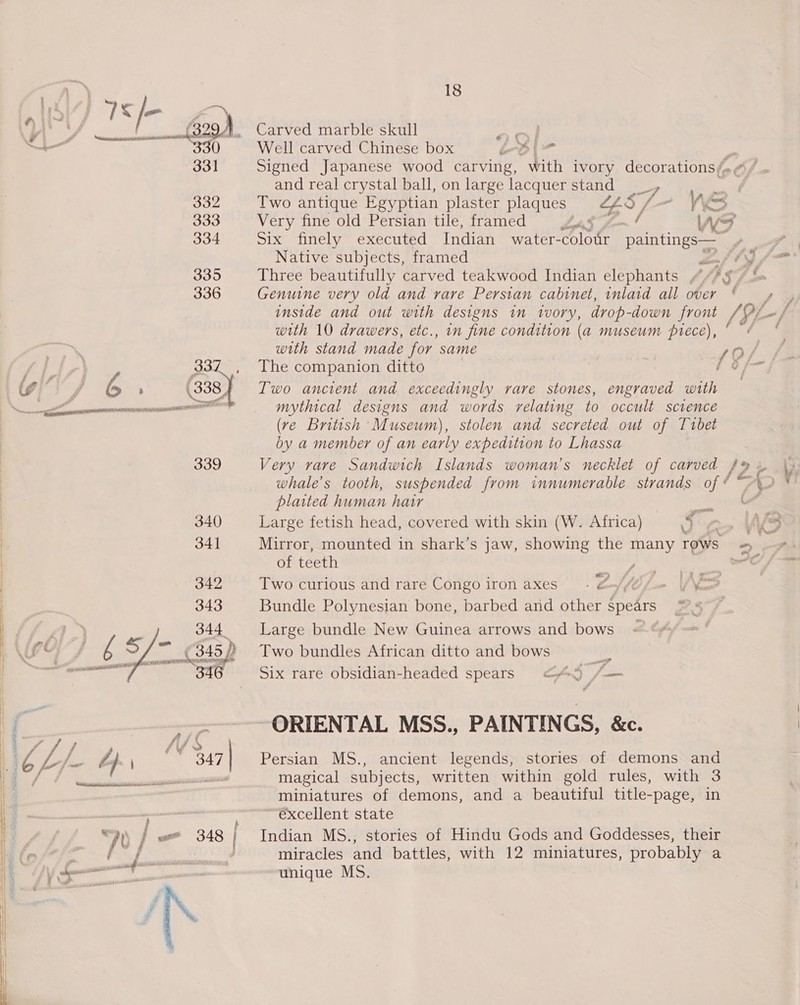 18
75/-
329 Carved marble skull
330 Well carved Chinese box
331 Signed Japanese wood carving, with ivory decorations
and real crystal ball, on large lacquer stand
332 Two antique Egyptian plaster plaques
333 Very fine old Persian tile, framed
334 Six finely executed Indian water-colour paintings—
Native subjects, framed
335 Three beautifully carved teakwood Indian elephants
336 Genuine very old and rare Persian cabinet, inlaid all over
inside and out with designs in ivory, drop-down front
with 10 drawers, etc., in fine condition (a museum piece),
with stand made for same
337 The companion ditto
338 Two ancient and exceedingly rare stones, engraved with
mythical designs and words relating to occult science
(re British Museum), stolen and secreted out of Tibet
by a member of an early expedition to Lhassa
339 Very rare Sandwich Islands woman's necklet of carved
whale's tooth, suspended from innumerable strands of
plaited human hair
340 Large fetish head, covered with skin (W. Africa)
341 Mirror, mounted in shark's jaw, showing the many rows
of teeth
342 Two curious and rare Congo iron axes
343 Bundle Polynesian bone, barbed and other spears
344 Large bundle New Guinea arrows and bows
65/- 345 Two bundles African ditto and bows
346 Six rare obsidian-headed spears
ORIENTAL MSS., PAINTINGS, &c.
347 Persian MS., ancient legends, stories of demons and
magical subjects, written within gold rules, with 3
miniatures of demons, and a beautiful title-page, in
excellent state
348 Indian MS., stories of Hindu Gods and Goddesses, their
miracles and battles, with 12 miniatures, probably a
unique MS.